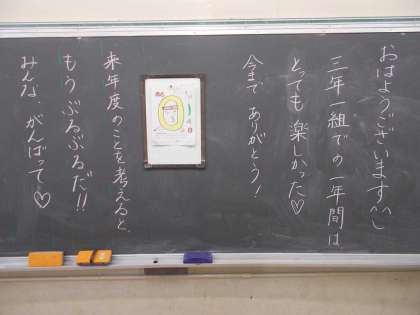 おはようございます^^
三年一組での一年間は
とっても楽しかった♡
今まで ありがとう!
来年度のことを考えると、
もう ぶるぶるだ!!
みんな、がんばって♡